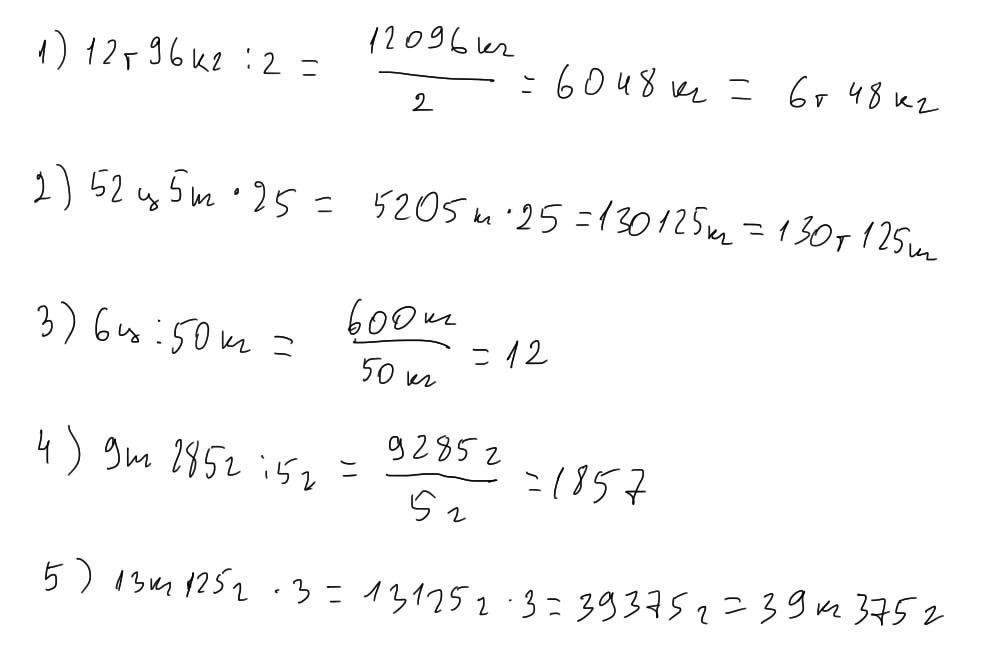 1) 12т 96кг : 2 = 12096кг / 2 = 6048 кг = 6т 48 кг
2) 52ц 5кг · 25 = 5205кг · 25 = 130125кг = 130т 125кг
3) 6ц : 50кг = 600кг / 50кг = 12
4) 9кг 285г : 5г = 9285г / 5г = 1857
5) 13кг 125г · 3 = 13125г · 3 = 39375г = 39кг 375г